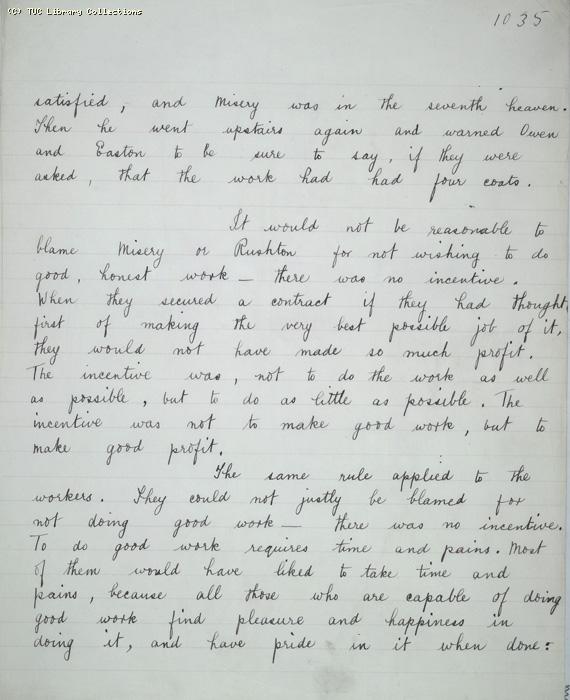 (C) TUC Library Collections
1035
satisfied, and Misery was in the seventh heaven.
Then he went upstairs again and warned Owen
and Easton to be sure to say, if they were
asked, that the work had had four coats.
It would not be reasonable to
blame Misery or Rushton for not wishing to do
good, honest work — there was no incentive.
When they secured a contract if they had thought
first of making the very best possible job of it,
they would not have made so much profit.
The incentive was, not to do the work as well
as possible, but to do as little as possible. The
incentive was not to make good work, but to
make good profit.
The same rule applied to the
workers. They could not justly be blamed for
not doing good work — there was no incentive.
To do good work requires time and pains. Most
of them would have liked to take time and
pains, because all those who are capable of doing
good work find pleasure and happiness in
doing it, and have pride in it when done: